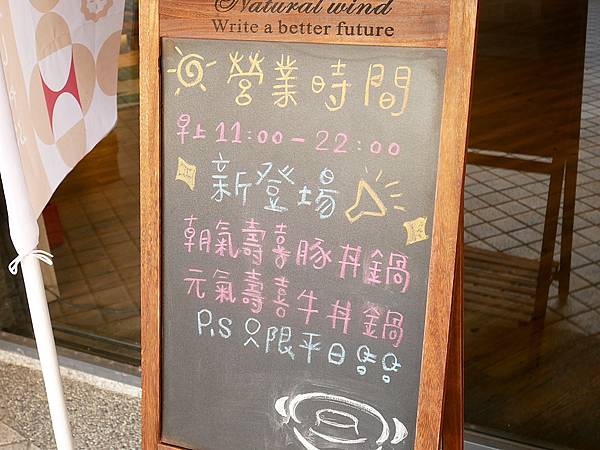 Natural wind
Write a better future
營業時間
早上 11:00-22:00
新登場
朝氣壽喜豚丼鍋
元氣壽喜牛丼鍋
P.S 只限平日